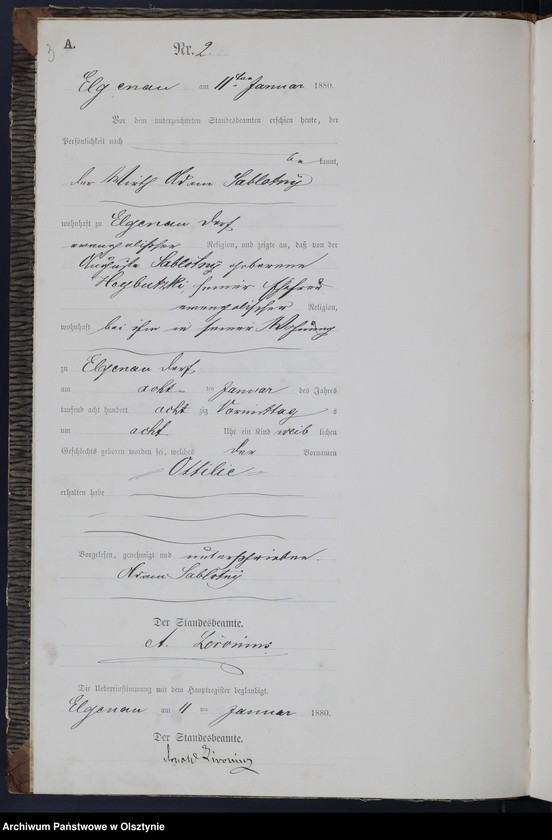 3
A.
Nr. 2
Elgenau am 11ten Januar 1880.
Vor dem unterzeichneten Standesbeamten erschien heute, der
Persönlichkeit nach
be kannt,
der Wirth Adam Sablotny
wohnhaft zu Elgenau Dorf
evangelischer Religion, und zeigte an, daß von der
Auguste Sablotny geborene
seiner Ehefrau
evangelischer Religion,
wohnhaft bei ihm in seiner Wohnung
zu Elgenau Dorf
am acht ten Januar des Jahres
tausend acht hundert acht zig Vormittag s
um acht Uhr ein Kind weib lichen
Geschlechts geboren worden sei, welches den Vornamen
Ottilie
erhalten habe
Vorgelesen, genehmigt und unterschrieben.
Adam Sablotny
Der Standesbeamte.
A. Zivonius
Die Uebereinstimmung mit dem Hauptregister beglaubigt.
Elgenau am 11 ten Januar 1880.
Der Standesbeamte.
Archiwum Państwowe w Olsztynie